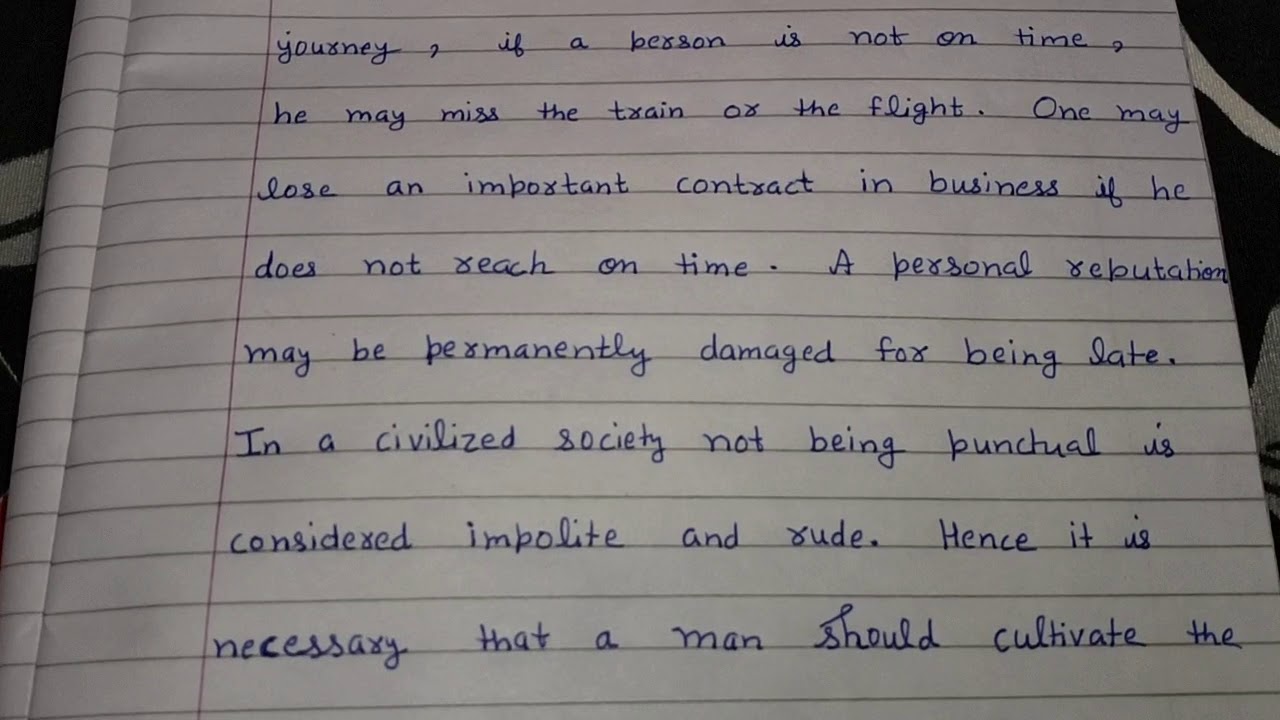 journey, if a person is not on time,
he may miss the train or the flight. One may
lose an important contract in business if he
does not reach on time. A personal reputation
may be permanently damaged for being late.
In a civilized society not being punctual is
considered impolite and rude. Hence it is
necessary that a man should cultivate the